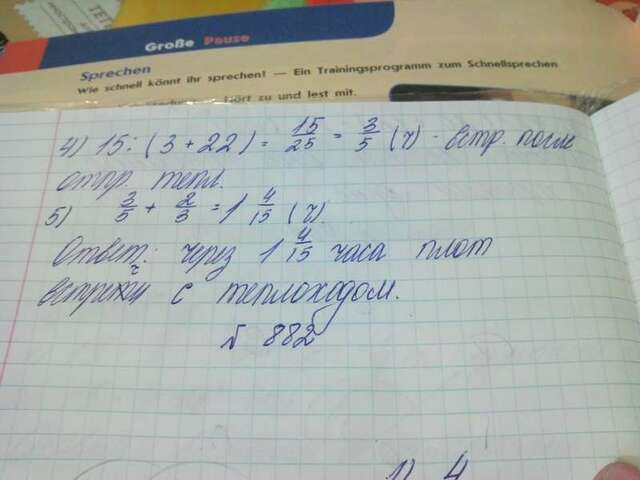 TET
Große Pause
Sprechen
Wie schnell könnt ihr sprechen? — Ein Trainingsprogramm zum Schnellsprechen
Hört zu und lest mit.
4) 15 : (3 + 22) = 15/25 = 3/5 (ч) - встр. после
отпр. тепл.
5) 3/5 + 2/3 = 1 4/15 (ч).
Ответ: через 1 4/15 часа плот
встречи с теплоходом.
№ 882
1) 4